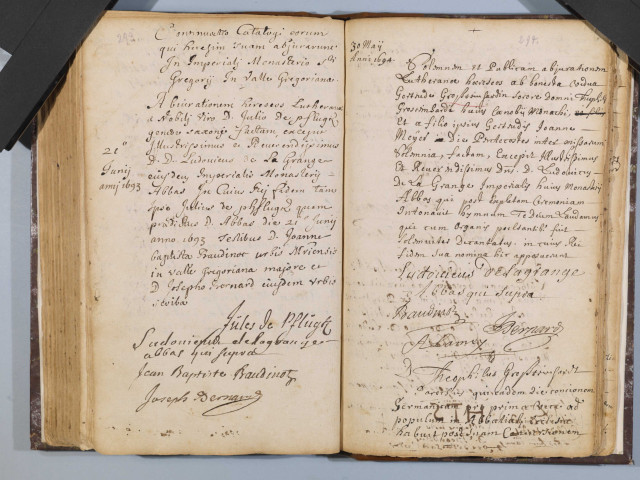 Continuatio Catalogi eorum
qui hæresim suam abjurarunt
In Imperiali Monasterio Sti
Gregorij In Valle Gregoriana
Abiurationem hæreseos Lutheranæ
a Nobili viro D. Julio de pflugk
gente saxonic factam, excepit
Illustrissimus et Reverendissimus
D. D. Ludovicus de La Grange
eiusdem Imperialis Monasterij
Abbas In Cuius Rej fidem tam
ipse Julius de pflugk quam
prædictus D. Abbas die 21 Junij
anno 1693 testibus D. Joanne
baptista Baudinot urbis
in valle Gregoriana majore et
D. Josepho Bernard eiusdem urbis
21
Junij
anni 1693
Jules de Pflugk
Ludovicus delagrange
abbas qui supra
Jean Baptiste Baudinot
Joseph Bernard
30 Maÿ
Anni 1694
Solemnem et Publicam abjurationem
Lutheranæ hæreseos ab honesta vidua
Gertrude sorore domni
huius Cænobij Monachi,
et a filio ipsius Gertrudis Joanne
Meyer die Pentecostes inter missarum
solemnia, factam, Excepit Illustrissimus
et Reverendissimus Dns. D. Ludovicus
de La Grange Imperialis huius Monasterij
Abbas qui post expletam Ceremoniam
Intonavit hymnum Te Deum Laudamus
qui cum organis
solemniter decantatus. in cuius Rei
fidem sua nomina hic apposuerunt
Ludovicus delagrange
Abbas qui supra
Baudinot
JBernard
D. Theophilus
qui eadem die concionem
Germanicam pro prima vice ad
populum in Abbatiali Ecclesia
habuit post suam Conversionem